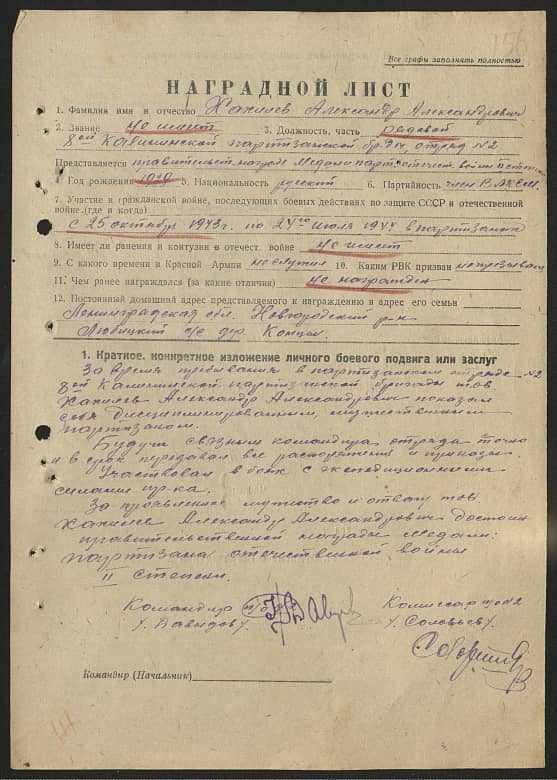 156
Все графы заполнять полностью
НАГРАДНОЙ ЛИСТ
1. Фамилия имя и отчество Хакилев Александр Александрович
2. Звание не имеет 3. Должность, часть рядовой
8ой Калининской партизанской бр-ды, отряд №2
Представляется правительств. награде Медали парт. отечеств. войны II степени
4. Год рождения 1929 5. Национальность русский 6. Партийность член ВЛКСМ
7. Участие в гражданской войне, последующих боевых действиях по защите СССР и отечественной
войне (где и когда)
с 25 октября 1943г. по 24го июля 1944 в партизанах
8. Имеет ли ранения и контузии в отечест. войне не имеет
9. С какого времени в Красной Армии не служил 10. Каким РВК призван не призывался
11. Чем ранее награждался (за какие отличия) не награжден
12. Постоянный домашний адрес представляемого к награждению и адрес его семьи
Ленинградская обл. Новгородский р-н
с/с дер. Концы.
1. Краткое, конкретное изложение личного боевого подвига или заслуг
За время пребывания в партизанском отряде №2
8ой Калининской партизанской бригады тов.
Хакилев Александр Александрович показал
себя дисциплинированным, мужественным
партизаном.
Будучи связным командира отряда точно
и в срок передавал все распоряжения и приказы.
Участвовал в боях с экспедиционными
силами пр-ка.
За проявленное мужество и отвагу тов.
Хакилев Александр Александрович достоин
правительственной награды Медали:
партизана отечественной войны
II степени.
Командир п/о Комиссар п/о №2
/Давыдов/ /Соловьев/
Командир (Начальник)